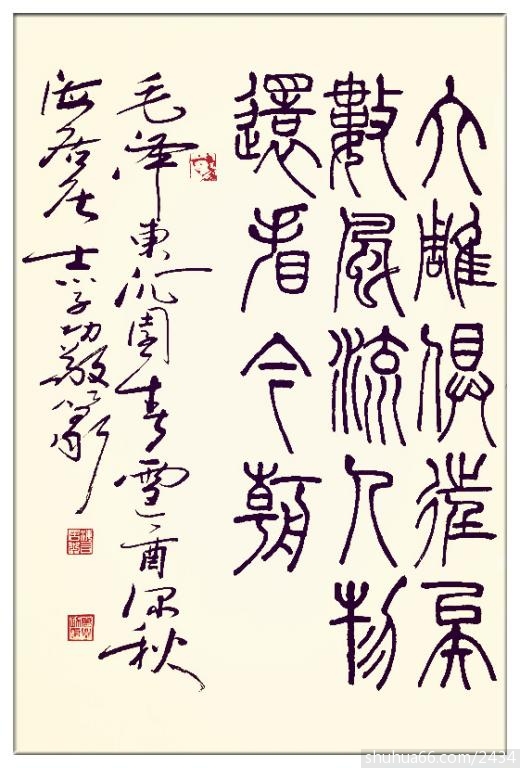 大雕俱往矣
數風流人物
還看今朝
毛泽東沁園春雪酉深秋
海居士学功敬篆
shuhua66.com/2434